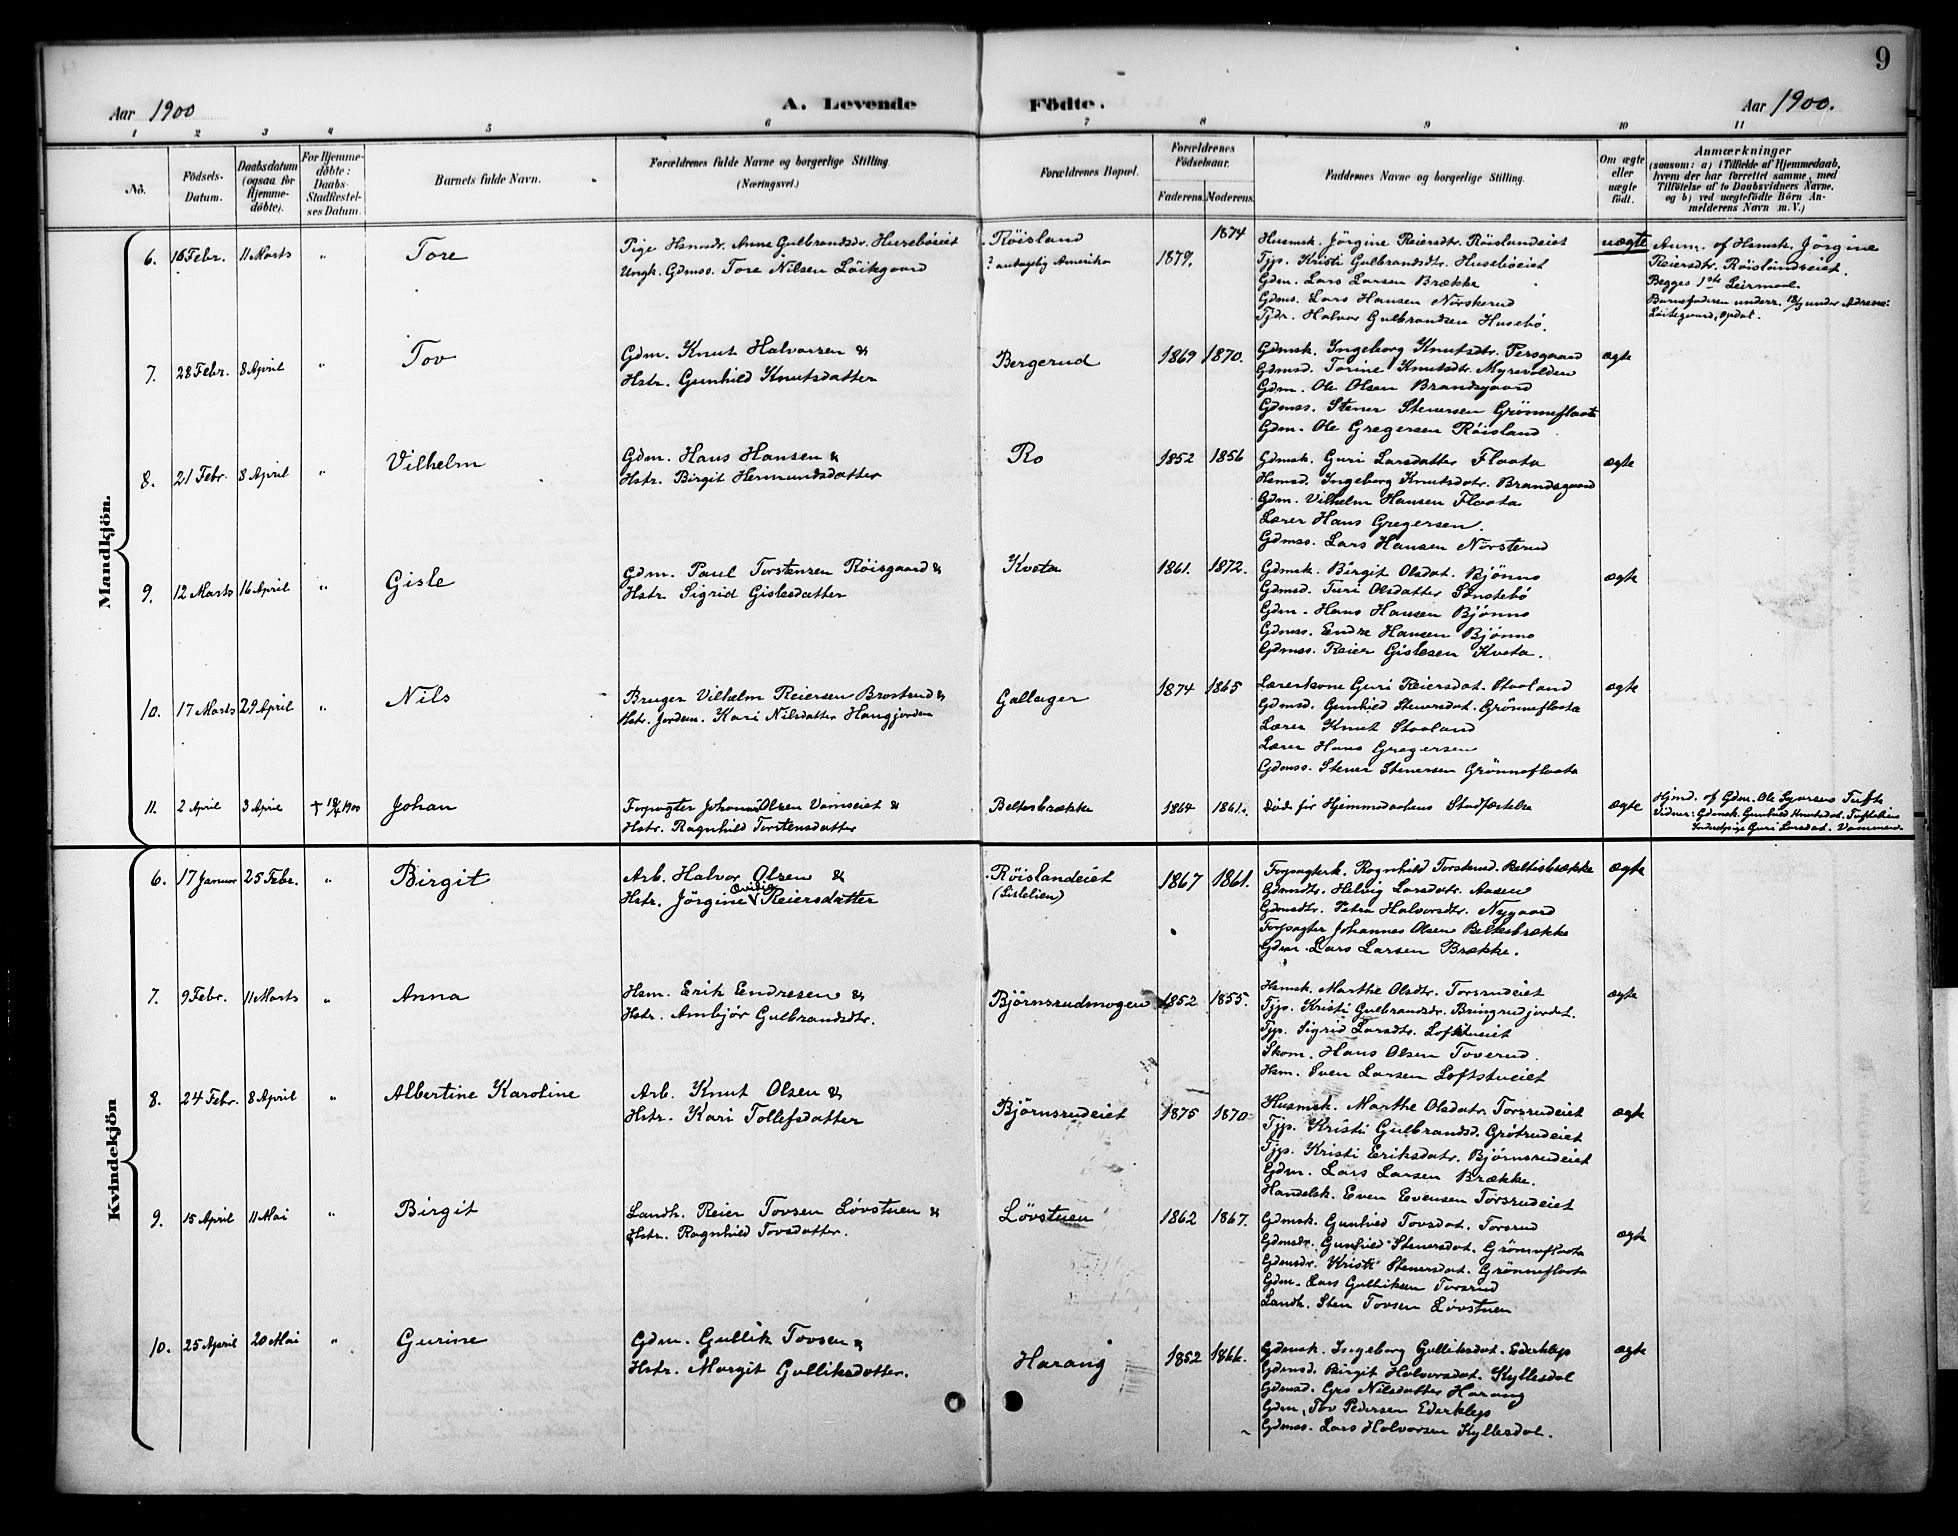 9
Aar 1900
A. Levende Födte.
Aar 1900.
1 2 3 4 5 6 7 8 9 10 11
No.
Födsels-Datum.
Daabsdatum (ogsaa for Hjemmedöbte).
For Hjemmedöbte: Daabs-Stadfæstelses Datum.
Barnets fulde Navn.
Forældrenes fulde Navne og borgerlige Stilling. (Næringsvei.)
Forældrenes Bopæl.
Forældrenes Födselsaar.
Faderens. Moderens.
Faddernes Navne og borgerlige Stilling.
Om ægte eller uægte födt.
Anmærkninger
(saasom: a) i Tilfælde af Hjemmedaab, hvem der har forrettet samme, med Tilföielse af to Daabsvidners Navne, og b) ved uægtefödte Börn Anmelderens Navn m. V.)
Mandkjön.
6. 16 Febr. 11 Marts " Tore
Pige Hsmdr. Anne Gulbrandsdr. Husebøeiet
Ungk. Gdmss. Tore Nilsen Löitegaard
Röisland
? antagelig Amerika
1879. 1874
Husmsk. Jörgine Reiersdtr. Röislandeiet
Tjp. Kristi Gulbrandsdtr. Husebøeiet
Gdm. Lars Larsen Brække
Gdms. Lars Hansen Norsterud
Tjdr. Halvor Gulbrandsen Husebö.
uægte
Anm. af Hsmsk. Jörgine
Reiersdtr. Röislandseiet.
Begges 1ste Leirmaal.
Barnefaderen underr. 18/3 under Adresse:
Löitegaard, Opdal.
7. 28 Febr. 8 April " Tov
Gdm. Knut Halvorsen &
Hstr. Gunhild Knutsdatter
Bergerud
1869 1870.
Gdmsk. Ingeborg Knutsdtr. Persgaard
Gdmsd. Torine Knutsdtr. Myrvolden
Gdm. Ole Olsen Brandsgaard
Gdmss. Stener Stenersen Grönneflaata
Gdm. Ole Gregersen Röisland
ægte
8. 21 Febr. 8 April " Vilhelm
Gdm. Hans Hansen &
Hstr. Birgit Hermundsdatter
Ro
1852 1856
Gdmsk. Guri Larsdatter Flaata
Hsmsd. Ingeborg Knutsdtr. Brandsgaard
Gdm. Vilhelm Hansen Flaata
Lærer Hans Gregersen.
Gdmss. Lars Hansen Norsterud
ægte
9. 12 Marts 16 April " Gisle
Gdm. Paul Torstensen Röisgaard &
Hstr. Sigrid Gislesdatter
Kveta
1861. 1872.
Gdmsk. Birgit Olsdat. Bjönno
Gdmsd. Turi Olsdatter Sønstebö
Gdm. Hans Hansen Bjönno
Gdmss. Endre Hansen Bjönno
Gdmss. Reier Gislesen Kveta.
ægte
10. 17 Marts 29 April " Nils
Bruger Vilhelm Reiersen Brostrud &
Hstr. Jordem. Kari Nilsdatter Haugjorden
Gallager
1874 1865
Lærerkone Guri Reiersdat. Staaland
Gdmsd. Gunhild Stenersdat. Grönneflaata
Lærer Knut Staaland
Lærer Hans Gregersen
Gdmss. Stener Stenersen Grönneflaata
ægte
11. 2 April 3 April † 19/4 1900 Johan
Forpagter Johannes Olsen Vamseiet &
Hstr. Ragnhild Torstensdatter
Beltesbrække
1864 1861.
Död för Hjemmedaabens Stadfæstelse
ægte
Hjmd. af Gdm. Ole Syversen Tufte
Vidner: Gdmsk. Gunhild Knutsdat. Tufteliin
Inderstpige Guri Larsdat. Vammen.
Kvindekjön
6. 17 Januar 25 Febr. " Birgit
Arb. Halvor Olsen &
Hstr. Jörgine Ovidia Reiersdatter
Röislandeiet
(Lislelien)
1867 1861.
Forpagterk. Ragnhild Torstensd. Beltesbrække
Gdmsdtr. Helvig Larsdatr. Aasen
Gdmsdtr. Petra Halvorsdtr. Nygaard
Forpagter Johannes Olsen Beltesbrække
Gdm. Lars Larsen Brække.
ægte
7. 9 Febr. 11 Marts " Anna
Hsm. Erik Endresen &
Hstr. Ambjør Gulbrandsdtr.
Björnsrudmogen
1852 1855.
Hsmsk. Marthe Olsdtr. Torsrudeiet
Tjp. Kristi Gulbrandsdr. Bringsudjordet.
Tjp. Sigrid Larsdtr. Loftstueiet
Skom. Hans Olsen Toverud.
Hsm. Sven Larsen Loftstueiet
ægte
8. 24 Febr. 8 April " Albertine Karoline
Arb. Knut Olsen &
Hstr. Kari Tollefsdatter
Björnsrudeiet
1875 1870
Husmsk. Marthe Olsdatr. Torsrudeiet
Tjp. Kristi Gulbrandsd. Grötrudeiet
Tjp. Kristi Eriksdatr. Björnsrudeiet
Gdm. Lars Larsen Brække.
Handelsk. Even Evensen Torsrudeiet
ægte
9. 15 April 11 Mai " Birgit
Landh. Reier Tovsen Lövstuen &
Hstr. Ragnhild Tovsdatter.
Lövstuen
1862 1867.
Gdmsk. Gunhild Tovsdat. Torsrud
Gdmsdr. Gunhild Stenersdat. Grönneflaata
Gdmsdr. Kristi Stenersdat. Grönneflaata
Gdm. Lars Gulliksen Torsrud
Landh. Sten Tovsen Lövstuen
ægte
10. 25 April 20 Mai " Gurine
Gdm. Gullik Tovsen &
Hstr. Margit Gulliksdatter.
Harang
1852 1866.
Gdmsk. Ingeborg Gulliksdat. Ederklep
Gdmsd. Birgit Halvorsdat. Kyllesdal
Gdmsd. Gro Nilsdatter Harang
Gdm. Tov Pedersen Ederklep
Gdmss. Lars Halvorsen Kyllesdal.
ægte